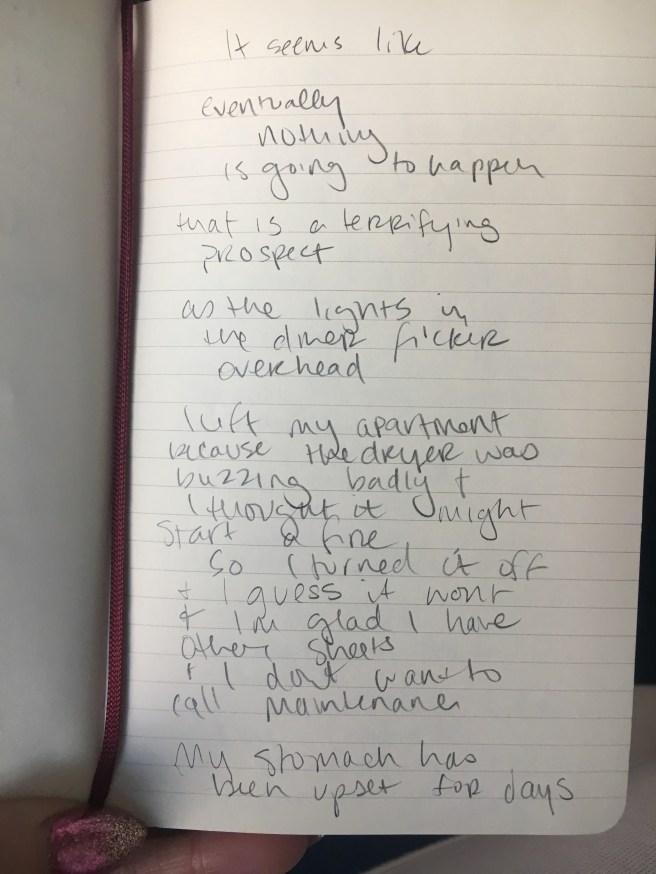 It seems like
eventually
nothing
is going to happen
that is a terrifying
prospect
as the lights in
the diner flicker
overhead
I left my apartment
because the dryer was
buzzing badly +
I thought it might
start a fire
So I turned it off
+ I guess it wont
+ Im glad I have
other sheets
+ I dont want to
call maintenance
My stomach has
been upset for days